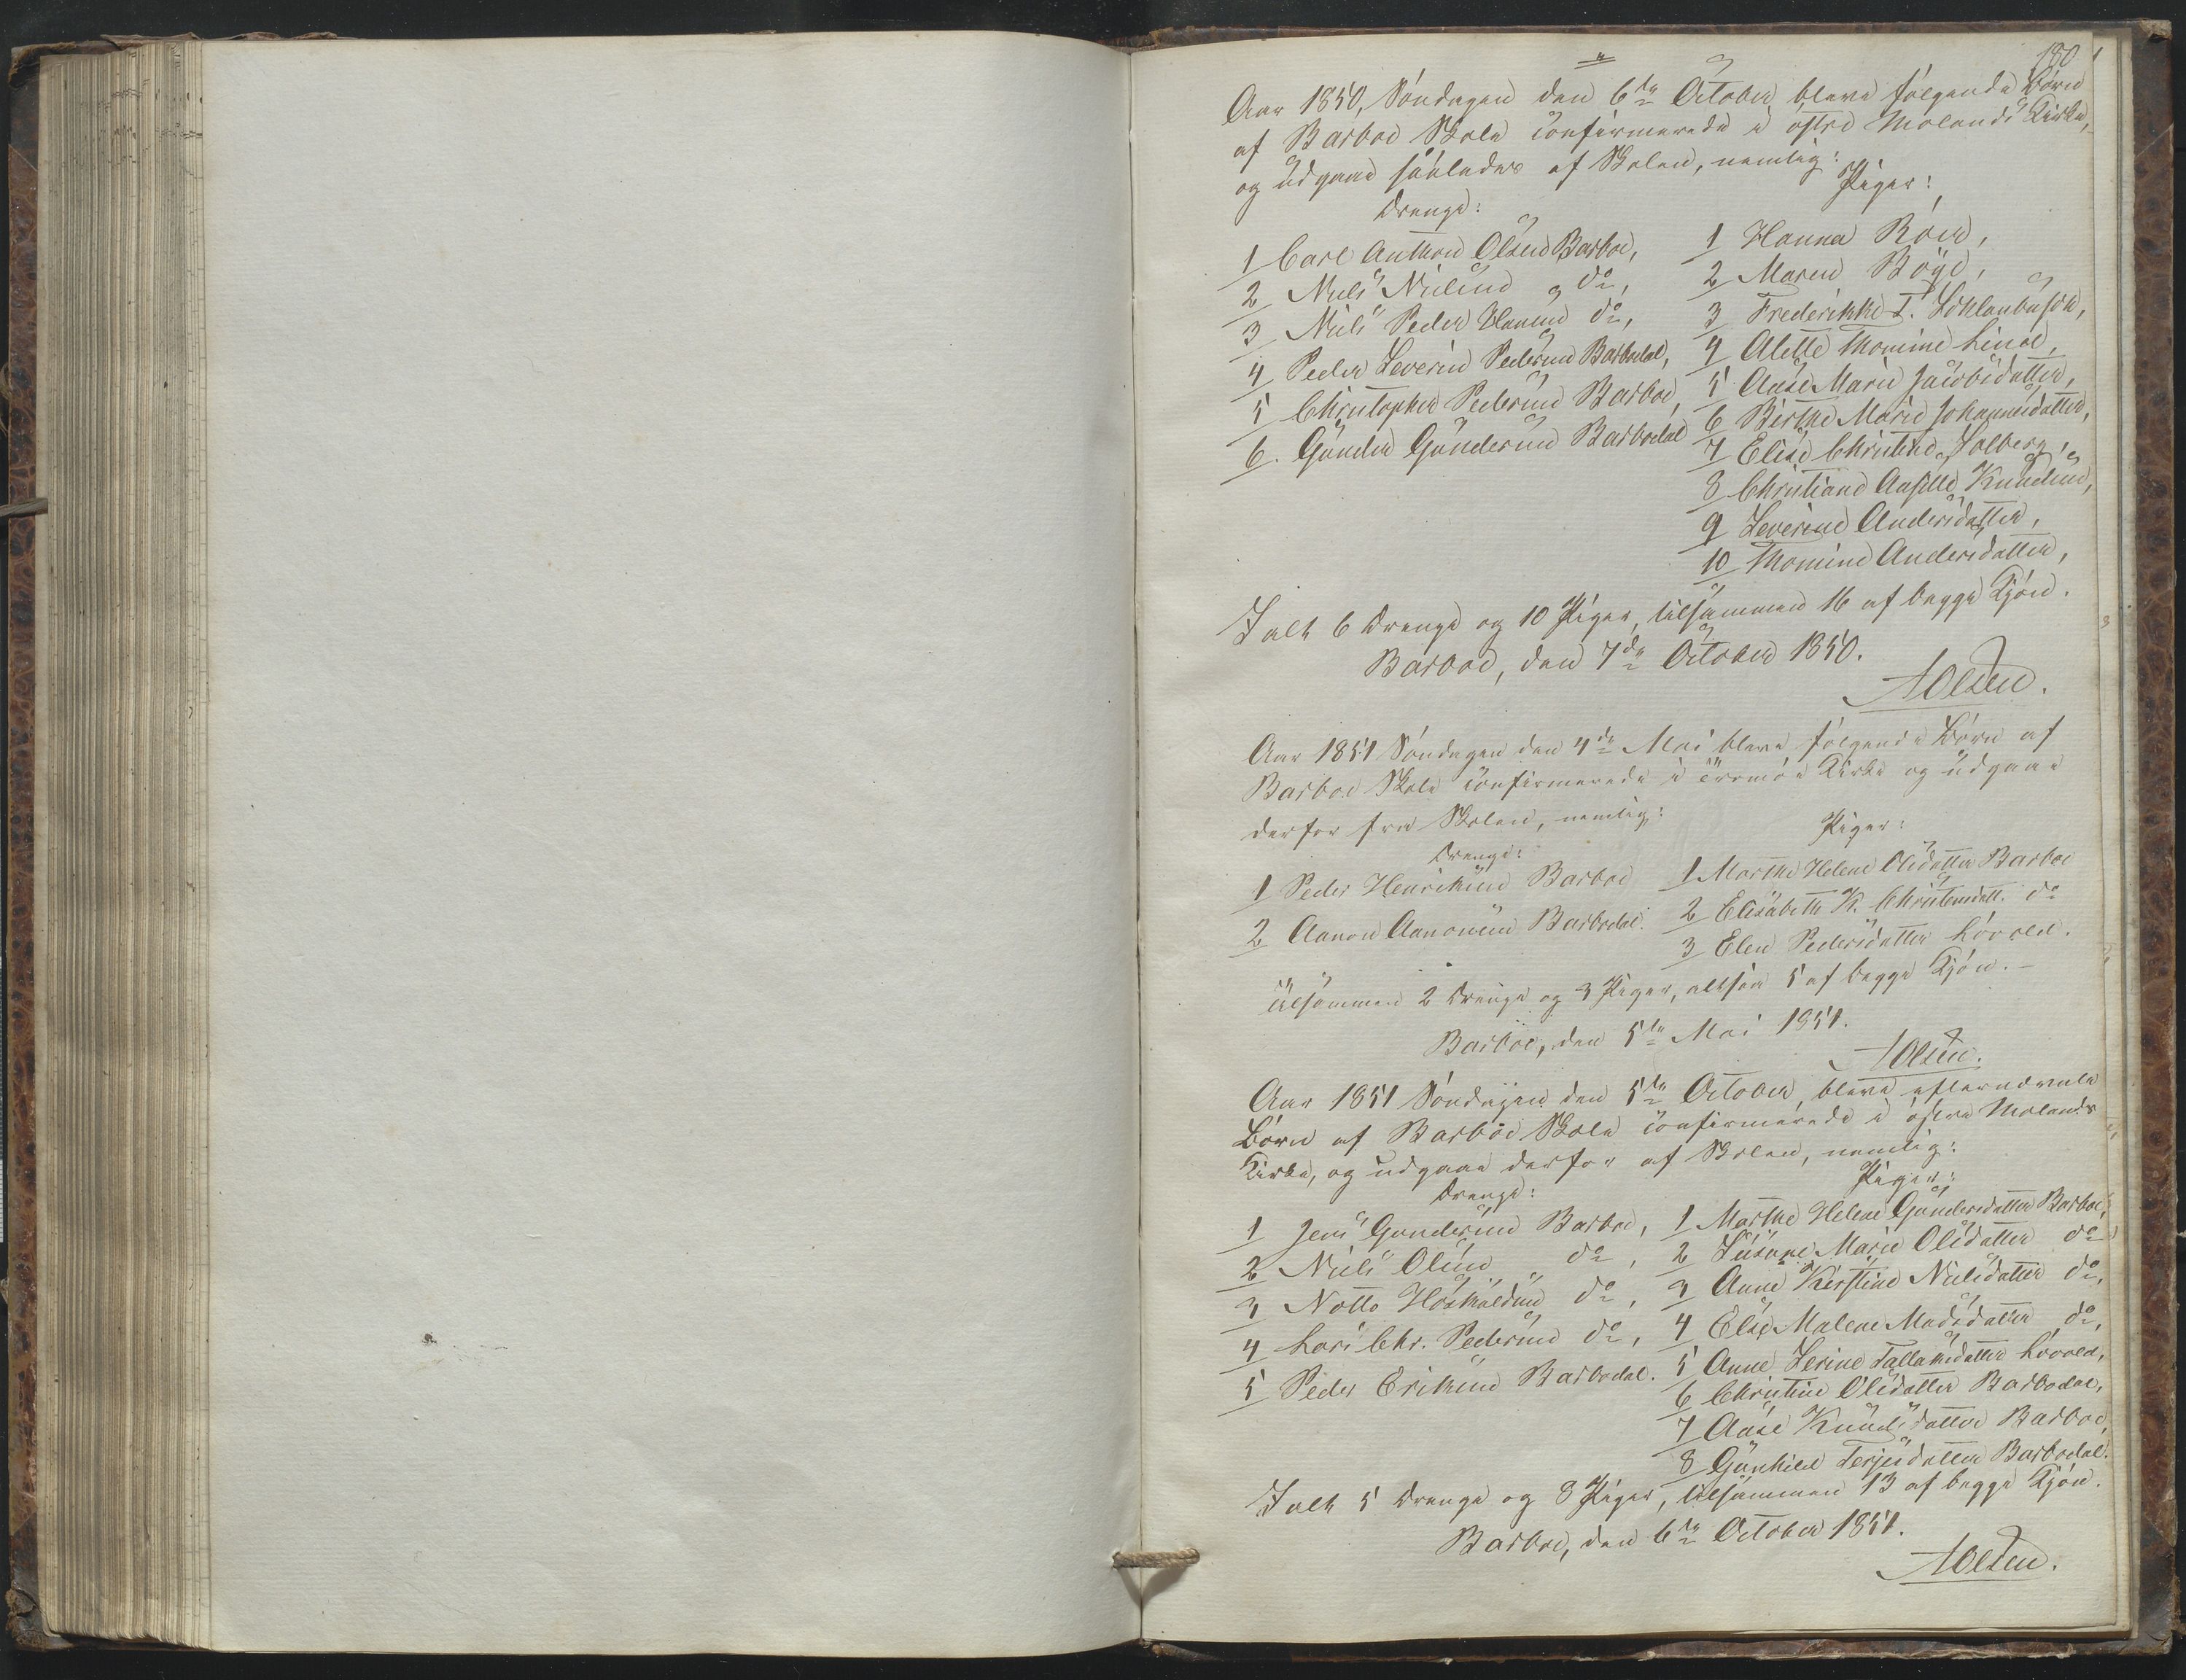 180
Aar 1850, Søndagen den 6te October bleve følgende Børn
af Barboe Skole confirmerede i østre Molands Kirke,
og udgaae saaledes af Skolen, nemlig:
Drenge:
1 Carl Anthon Olsen Barboe,
2 Niels Nielsen do,
3 Niels Peder Hansen do,
4 Peder Severin Pedersen Barbodal,
5 Christopher Pedersen Barboe,
6. Gunder Gundersen Barbodal
Piger:
1 Hanna Röer,
2 Maren Böye,
3 Frederikke T. Schlanbusch,
4 Alette Thomine Linoe,
5 Aase Marie Jacobsdatter,
6 Birthe Marie Johannesdatter,
7 Elise Christine Solberg,
8 Christiane Aasille Knudsen,
9 Severine Andersdatter,
10 Thomine Andersdatter,
I alt 6 Drenge og 10 Piger, tilsammen 16 af begge Kjøn.
Barboe, den 7de October 1850.
AOlsen.
Aar 1851 Søndagen den 4de Mai bleve følgende Børn af
Barboe Skole confirmerede i Tromøe Kirke og udgaae
derfor fra Skolen, nemlig:
Drenge:
1 Peder Henriksen Barboe
2 Aanon Aanonsen Barbodal.
Piger:
1 Marthe Helene Olsdatter Barboe
2 Elisabeth K. Christensdatt. do
3 Elen Pedersdatter Lövold.
Tilsammen 2 Drenge og 3 Piger, altsaa 5 af begge Kjøn. –
Barboe, den 5te Mai 1851.
AOlsen.
Aar 1851 Søndagen den 5te October, bleve efternævnte
Børn af Barboe Skole confirmerede i østre Molands
Kirke, og udgaae derfor af Skolen, nemlig:
Drenge:
1 Jens Gundersen Barboe,
2 Niels Olsen do,
3 Notto Höskuldsen do,
4 Lars Chr. Pedersen do,
5 Peder Eriksen Barbodal.
Piger:
1 Marthe Helene Gundersdatter Barboe,
2 Susanne Marie Olsdatter do
3 Anne Kirstine Nielsdatter do,
4 Else Malene Madsdatter do,
5 Anne Serine Tallaksdatter Lövold,
6 Christine Olsdatter Barbodal,
7 Aase Knudsdatter Barboe,
8 Gunhild Terjesdatter Barbodal.
I alt 5 Drenge og 8 Piger, tilsammen 13 af begge Kjøn.
Barboe, den 6te October 1851.
AOlsen.